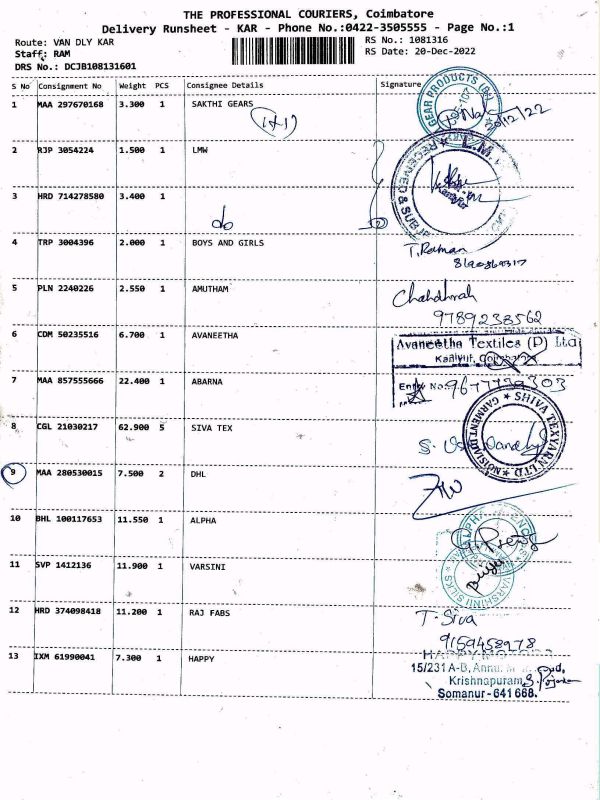 THE PROFESSIONAL COURIERS, Coimbatore
Delivery Runsheet - KAR - Phone No.:0422-3505555 - Page No.:1
Route: VAN DLY KAR RS No.: 1081316
Staff: RAM RS Date: 20-Dec-2022
DRS No.: DCJB108131601
S No Consignment No Weight PCS Consignee Details Signature
1 MAA 297670168 3.300 1 SAKTHI GEARS
GEAR PRODUCTS
20/12/22
2 RJP 3054224 1.500 1 LMW
L.M.
RECEIVED & SUBJ
3 HRD 714278580 3.400 1
do
4 TRP 3004396 2.000 1 BOYS AND GIRLS
T. Raman
5 PLN 2240226 2.550 1 AMUTHAM
9789238562
6 CDM 50235516 6.700 1 AVANEETHA
Avaneetha Textiles (P) Ltd
7 MAA 857555666 22.400 1 ABARNA
Entry No.
9677739303
8 CGL 21030217 62.900 5 SIVA TEX
SHIVA TEXYARN LTD
GARMENT DIVISION
9 MAA 280530015 7.500 2 DHL
10 BHL 100117653 11.550 1 ALPHA
ALPHA
11 SVP 1412136 11.900 1 VARSINI
VARSHINI SILKS
12 HRD 374098418 11.200 1 RAJ FABS
T. Siva
9159458978
13 IXM 61990041 7.300 1 HAPPY
HAPPY
15/231 A-B,
Krishnapuram,
Somanur - 641 668.